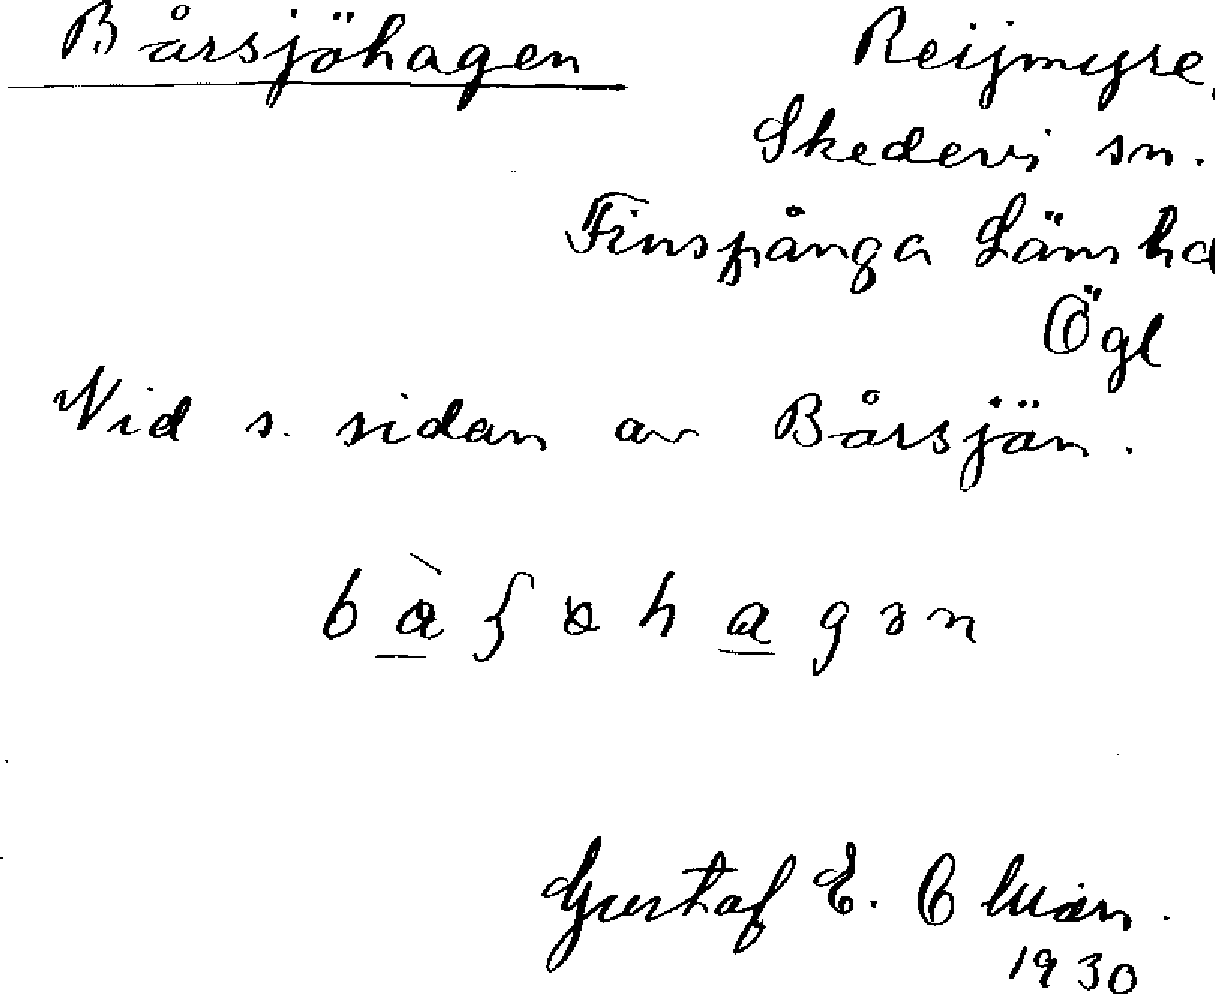 Bårsjöhagen
Reijmyre,
Skedevi sn.
Finspånga Läns hd
Ögl
Vid s. sidan av Bårsjön.
Gustaf E.
1930